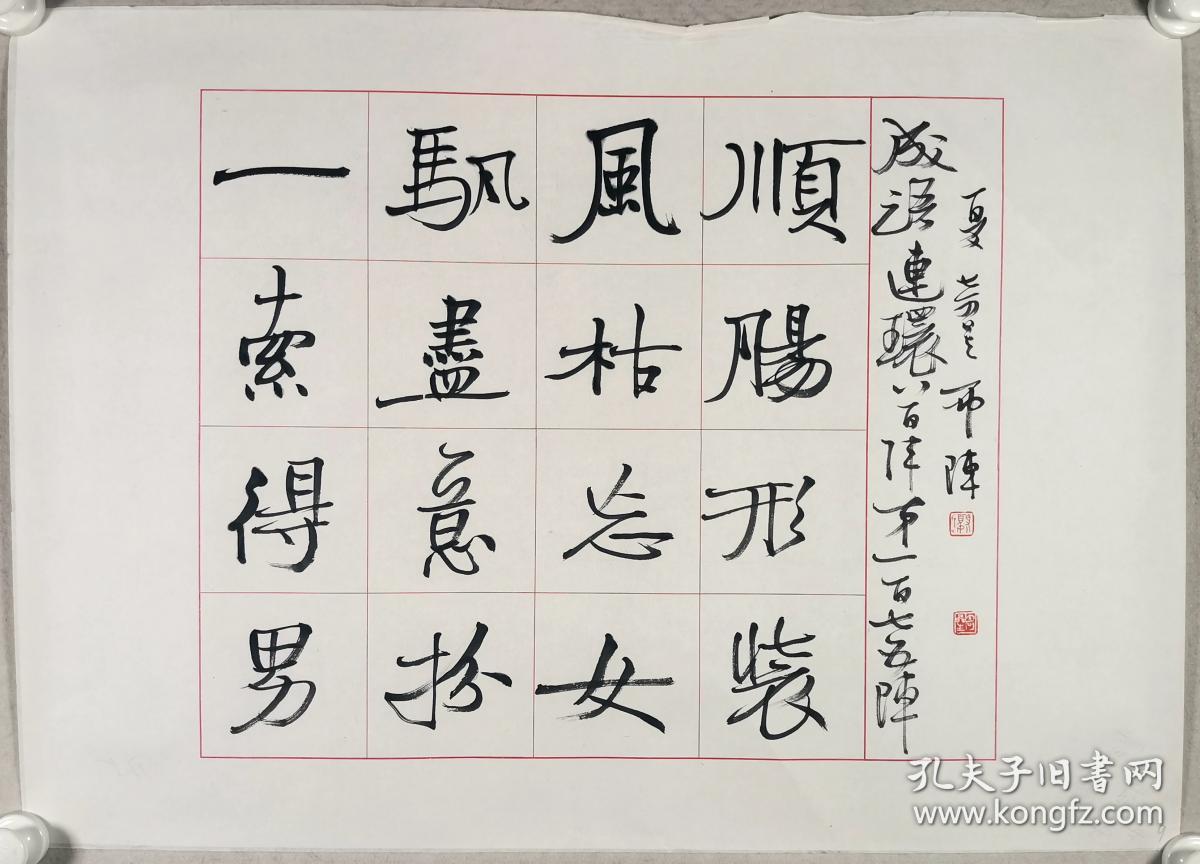 一䭵風順
索盡枯腸
得意忘形
男扮女裝
成語連環八百阵第一百七五陣
夏 布陣
孔夫子旧書网
www.kongfz.com